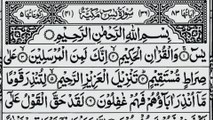 اٰيَاتُهَا ۸۳ (۳۶) سُوْرَةُ يٰسٓ مَكِّيَّةٌ (۴۱) رُكُوْعَاتُهَا ۵
بِسْمِ اللّٰهِ الرَّحْمٰنِ الرَّحِيْمِ
يٰسٓ وَالْقُرْاٰنِ الْحَكِيْمِ اِنَّكَ لَمِنَ الْمُرْسَلِيْنَ عَلٰى
صِرَاطٍ مُّسْتَقِيْمٍ تَنْزِيْلَ الْعَزِيْزِ الرَّحِيْمِ لِتُنْذِرَ قَوْمًا
مَّآ اُنْذِرَ اٰبَآؤُهُمْ فَهُمْ غٰفِلُوْنَ لَقَدْ حَقَّ الْقَوْلُ عَلٰٓى